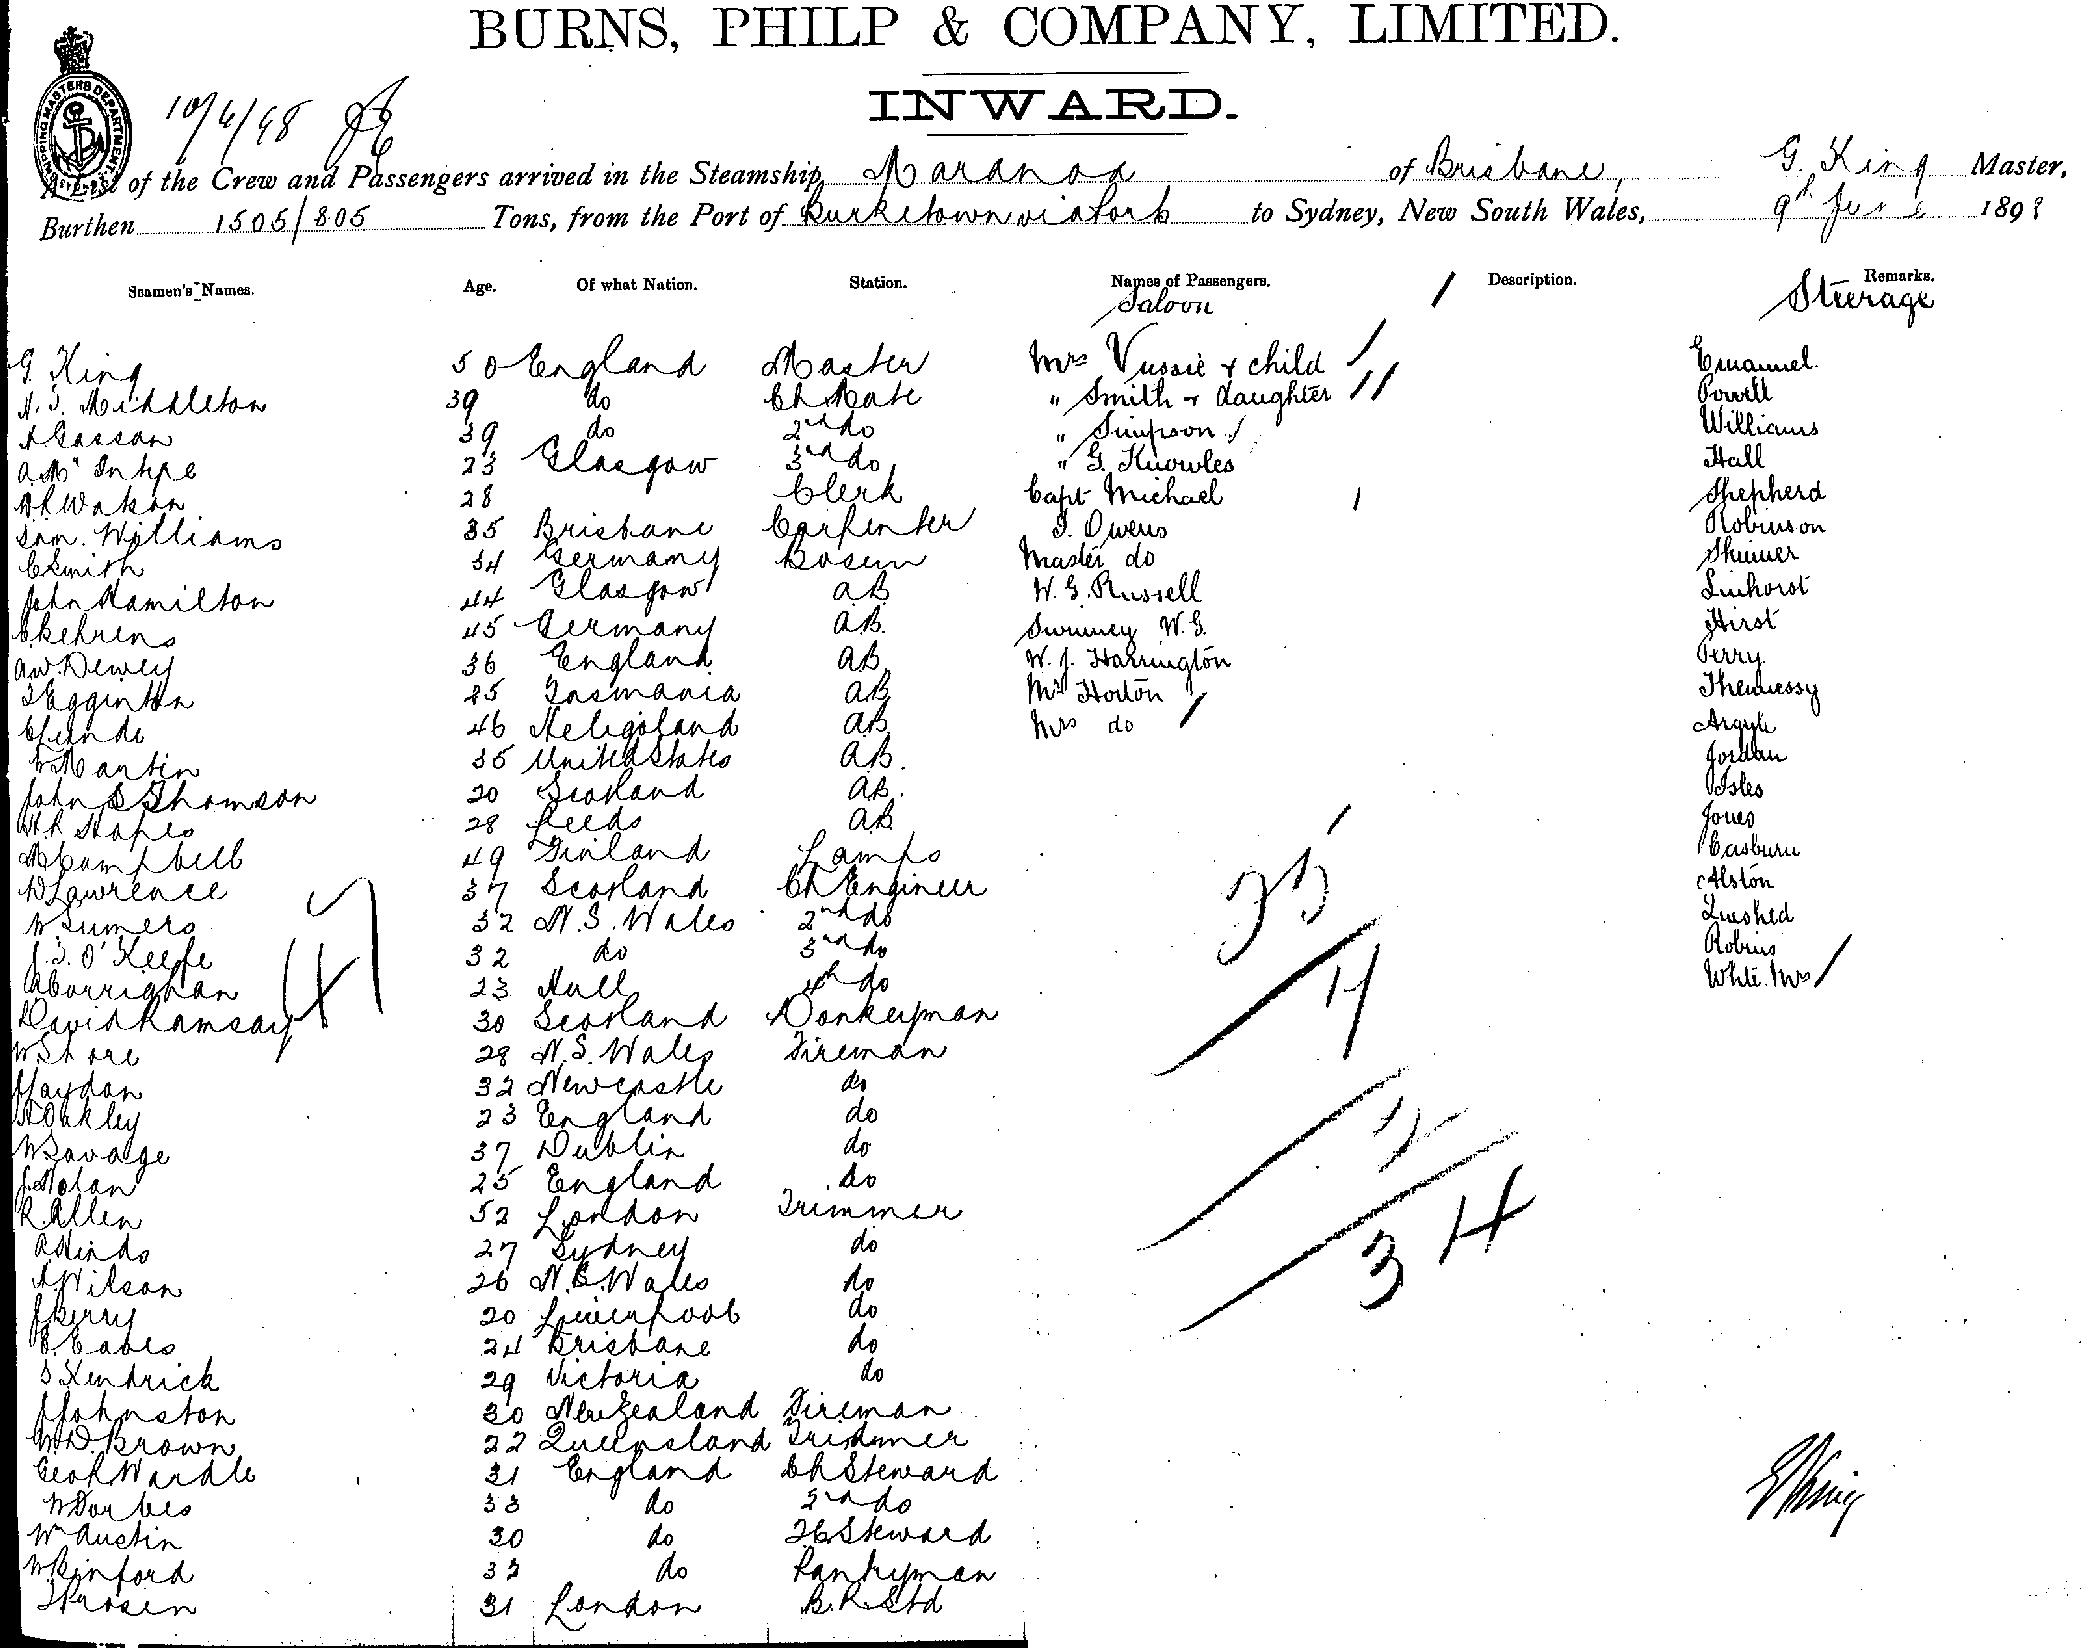 BURNS, PHILP & COMPANY, LIMITED.
INWARD.
SHIPPING MASTERS DEPARTMENT
10/6/98
A List of the Crew and Passengers arrived in the Steamship Maranoa of Brisbane, G. King Master,
Burthen 1505/805 Tons, from the Port of Burketown via Ports to Sydney, New South Wales, 9th June 1898
Seamen's Names. Age. Of what Nation. Station. Names of Passengers. Description. Remarks.
Saloon Steerage
G. King 50 England Master Mrs Vussie & child Emanuel
Middleton 39 do Ch Mate " Smith & daughter Powell
39 do 2nd do " Simpson Williams
23 Glasgow 3rd do " G. Knowles Hall
28 Clerk Capt Michael Shepherd
Sam. Williams 35 Brisbane Carpenter J. Owens Robinson
C Smith 34 Germany Bosun Master do Skinner
John Hamilton 44 Glasgow AB W. G. Russell Linhorst
C Behrens 45 Germany AB. Swinney W. G. Hirst
A W. Dewey 36 England AB W. J. Harrington Perry
Egginton 25 Tasmania AB Mr Horton Thennessy
46 Heligoland AB Mrs do Argyle
Martin 35 United States AB. Jordan
John S Thomson 20 Scotland AB. Isles
28 Leeds AB Jones
Campbell 49 Finland Lamps Casburn
D Lawrence 37 Scotland Ch Engineer Alston
W Sumers 32 N. S. Wales 2nd do
J. J. O'Keefe 32 do 3rd do Robins
A Corrighan 23 Hull 4th do White Mrs
David Ramsay 30 Scotland Donkeyman
W Shore 28 N. S. Wales Fireman
J Haydon 32 Newcastle do
Oakley 23 England do
W Savage 37 Dublin do
J. Nolan 25 England do
R. Allen 52 London Trimmer
A Hinds 27 Sydney do
A Wilson 26 N. S. Wales do
J Berry 20 Liverpool do
E. Eabes 24 Brisbane do
S Kendrick 29 Victoria do
J Johnston 30 New Zealand Fireman
W D. Brown 22 Queensland Trimmer
Geo R Wardle 31 England Ch Steward
W Forbes 33 do 2nd do
Wm Austin 30 do F C Steward
W Binford 32 do Pantryman
31 London B. R. Std
47
35
4
34
G King